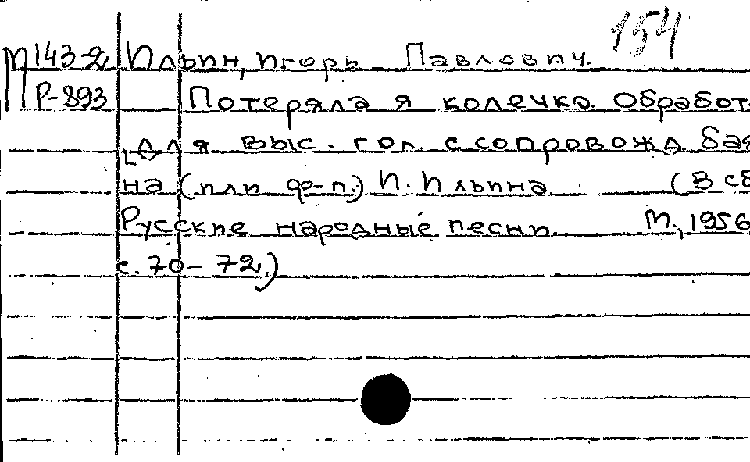 154
М143-2 Ильин, Игорь Павлович.
Р-893 Потеряла я колечко. Обработ
для выс. гол. с сопровожд. бая
на (или ф-п.) И. Ильина (В сб
Русские народные песни. М., 1956
с. 70-72.)